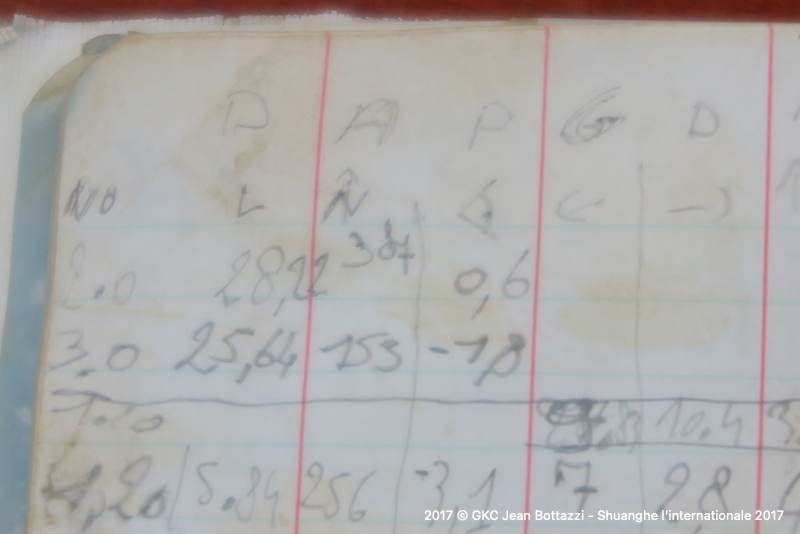 D A P G D
No L N <
2.0 28,22 387 0,6
3.0 25,64 153 -1,8
1.20 10.4 3
1,20 5.84 256 -3,1 7 2,8
2017 © GKC Jean Bottazzi - Shuanghe l'internationale 2017